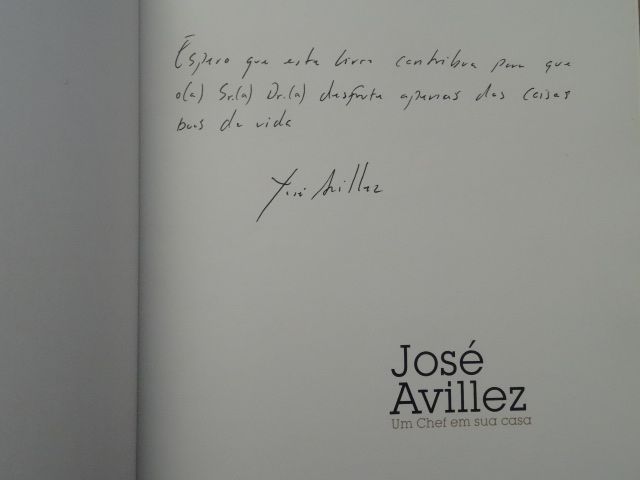 Espero que este livro contribua para que
o(a) Sr.(a) Dr.(a) desfrute apenas das coisas
boas da vida
José Avillez
José
Avillez
Um Chef em sua casa